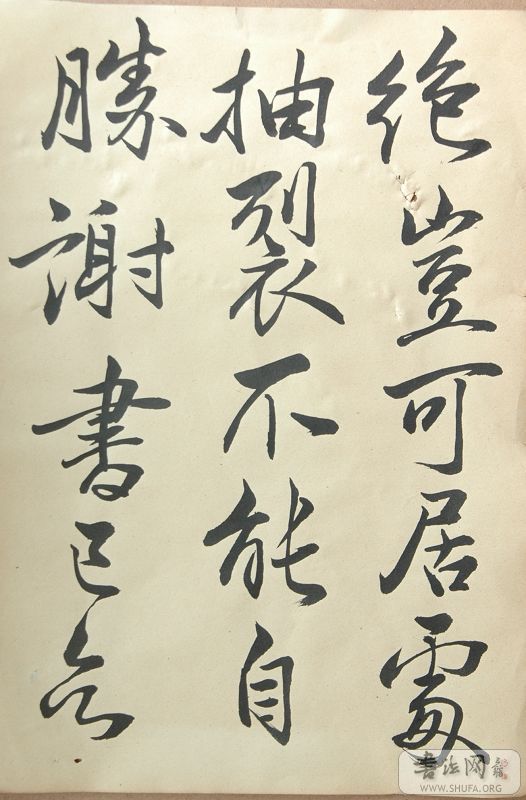 絶豈可居處
抽裂不能自
勝謝書已
書法网
WWW.SHUFA.ORG